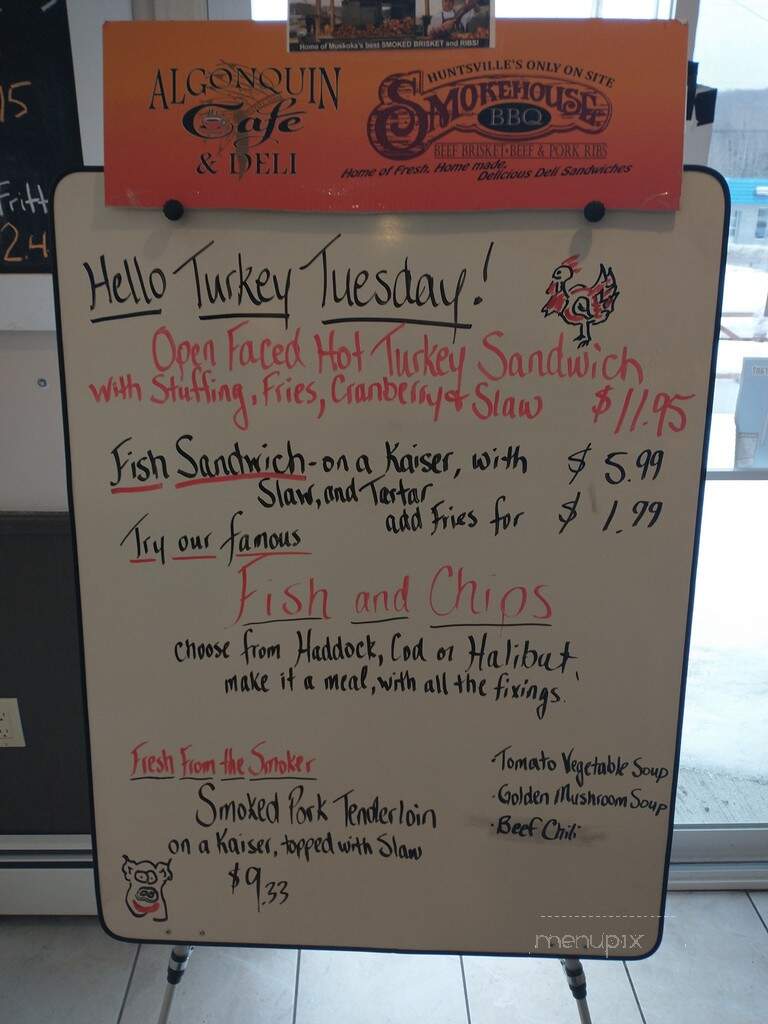 Home of Muskoka's best SMOKED BRISKET and RIBS!
ALGONQUIN
Cafe
& DELI
HUNTSVILLE'S ONLY ON SITE
SMOKEHOUSE
BBQ
BEEF BRISKET • BEEF & PORK RIBS
Home of Fresh, Home made,
Delicious Deli Sandwiches
Hello Turkey Tuesday!
Open Faced Hot Turkey Sandwich
with Stuffing, Fries, Cranberry & Slaw $11.95
Fish Sandwich - on a Kaiser, with $5.99
Slaw, and Tartar
add Fries for $1.99
Try our famous
Fish and Chips
choose from Haddock, Cod or Halibut,
make it a meal, with all the fixings.
Fresh From the Smoker
Smoked Pork Tenderloin
on a Kaiser, topped with Slaw
$9.33
· Tomato Vegetable Soup
· Golden Mushroom Soup
· Beef Chili
menupix